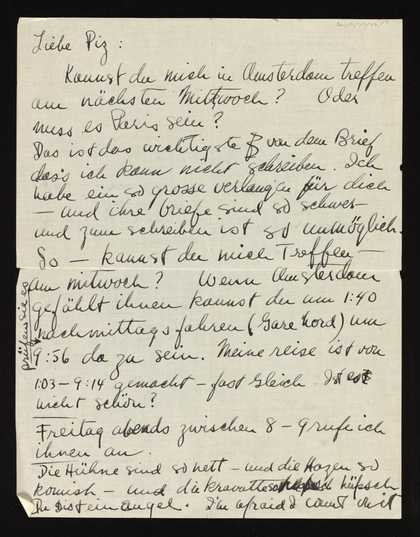 Liebe Piz:
Kannst du mich in Amsterdam treffen
am nächsten Mittwoch? Oder
muss es Paris sein?
Das ist das wichtigste von dem Brief
dass ich kann nicht schreiben. Ich
habe ein so grosse verlangen für dich
– und ihre briefe sind so schwer –
und zum schreiben ist so unmöglich.
So – kannst du mich Treffen –
am mitwoch? Wenn Amsterdam
gefählt ihnen kannst du um 1:40
nachmittags fahren (Gare Nord) um
9:56 da zu sein. Meine reise ist von
prüfen sie es
1:03 – 9:14 gemacht – fast gleich Ist es
nicht schön?
Freitag abends zwischen 8 – 9 rufe ich
ihnen an.
Die Hühne sind so nett – und die Hazen so
komish – und die kravatte hüpsch
Du bist ein angel. I'm afraid I can't do it